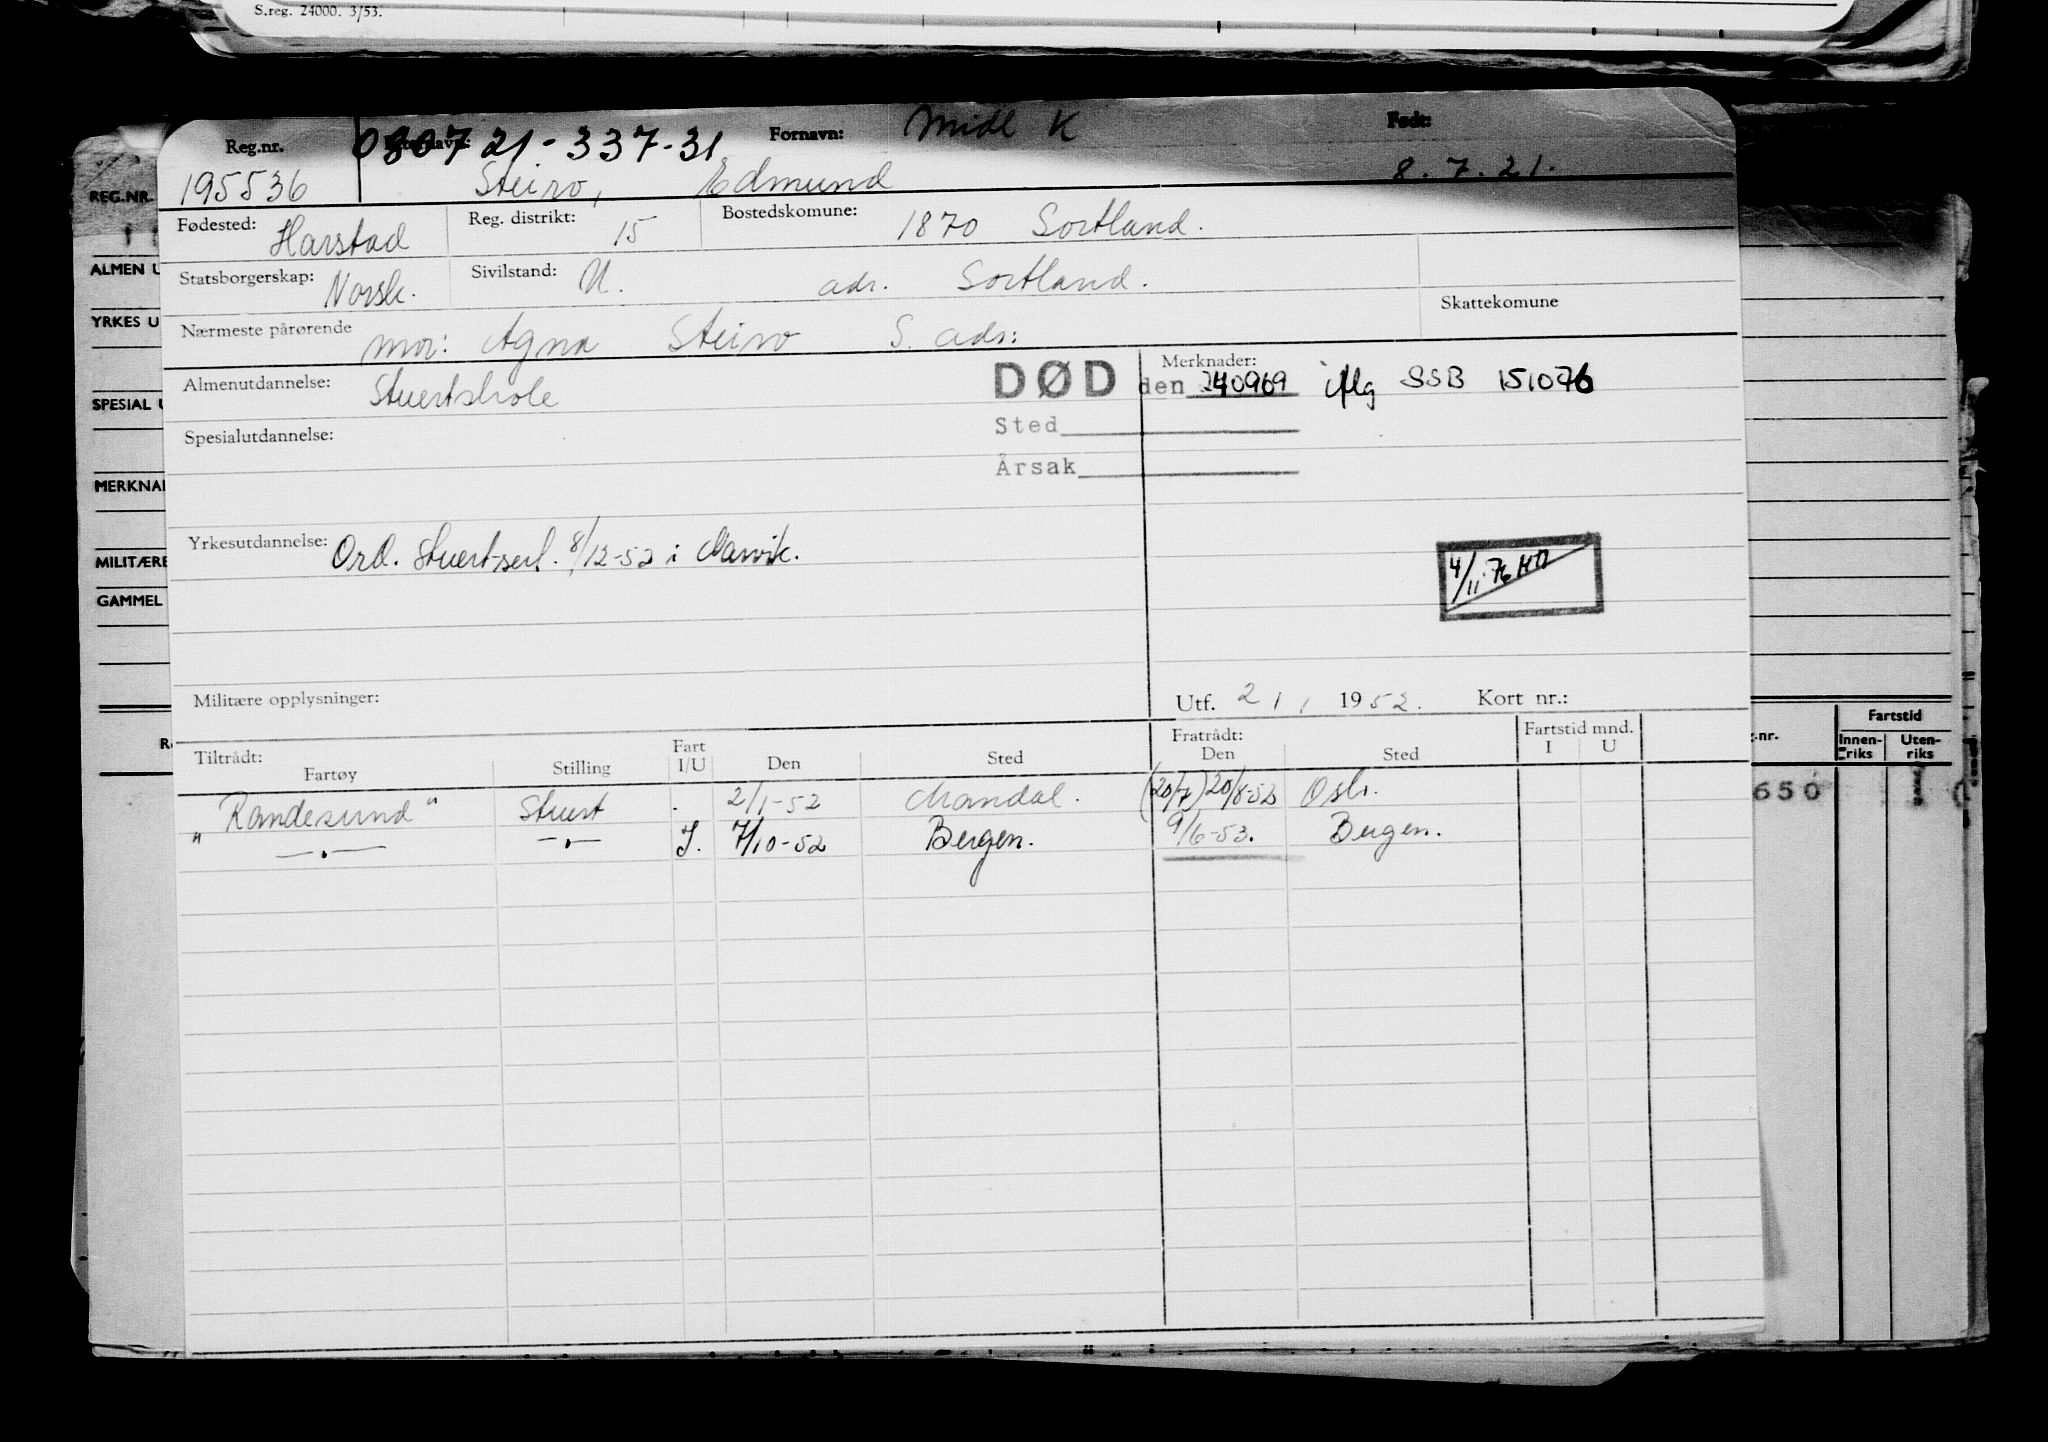 S.reg. 24000. 3/53.
Reg.nr. 080721-337-31 Fornavn: Midl K Født:
195536 Steiro, Edmund 8.7.21.
Fødested: Harstad Reg. distrikt: 15 Bostedskomune: 1870 Sortland.
Statsborgerskap: Norsk. Sivilstand: U. adr. Sortland.
Skattekomune
Nærmeste pårørende mor: Agna Steiro S. adr:
Almenutdannelse: Stuertskole
Merknader:
DØD den 240969 iflg SSB 151076
Sted
Årsak
Spesialutdannelse:
Yrkesutdannelse: Ord. Stuert-serl. 8/12-52 i Narvik.
4/11-76
Militære opplysninger:
Utf. 2/1, 1952. Kort nr.:
Tiltrådt: Fartøy Stilling Fart I/U Den Sted Fratrådt: Den Sted Fartstid mnd. I U
"Randesund" Stuert . 2/1-52 Mandal. (20/7) 20/8-52 Oslo.
" —"— —"— I. 7/10-52 Bergen. 9/6-53. Bergen.
REG.NR.
ALMEN U
YRKES U
SPESIAL U
MERKNAD
MILITÆRE
GAMMEL
R
.nr. Fartstid
Innen-riks Uten-riks
650